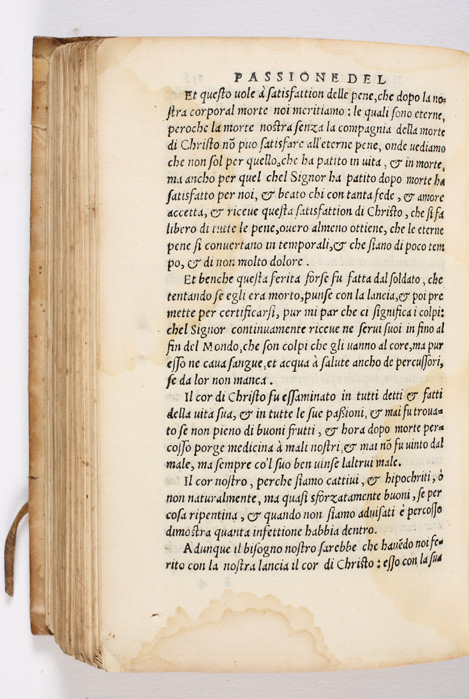 PASSIONE DEL
Et questo uole à satisfattion delle pene, che dopo la no-
stra corporal morte noi meritiamo: le quali sono eterne,
peroche la morte nostra senza la compagnia della morte
di Christo nō puo satisfare all'eterne pene, onde uediamo
che non sol per quello, che ha patito in uita, & in morte,
ma ancho per quel chel Signor ha patito dopo morte ha
satisfatto per noi, & beato chi con tanta fede, & amore
accetta, & riceue questa satisfattion di Christo, che si fa
libero di tutte le pene, ouero almeno ottiene, che le eterne
pene si conuertano in temporali, & che siano di poco tem
po, & di non molto dolore.
Et benche questa ferita forse fu fatta dal soldato, che
tentando se egli era morto, punse con la lancia, & poi pre
mette per certificarsi, pur mi par che ci significa i colpi:
chel Signor continuamente riceue ne serui suoi in fino al
fin del Mondo, che son colpi che gli uanno al core, ma pur
esso ne caua sangue, et acqua à salute ancho de percussori,
se da lor non manca.
Il cor di Christo fu essaminato in tutti detti & fatti
della uita sua, & in tutte le sue passioni, & mai fu troua-
to se non pieno di buoni frutti, & hora dopo morte per-
cosso porge medicina à mali nostri, & mai nō fu uinto dal
male, ma sempre co'l suo ben uinse laltrui male.
Il cor nostro, perche siamo cattiui, & hipochriti, ò
non naturalmente, ma quasi sforzatamente buoni, se per
cosa ripentina, & quando non siamo aduisati è percosso
dimostra quanta infettione habbia dentro.
Adunque il bisogno nostro sarebbe che hauēdo noi fe-
rito con la nostra lancia il cor di Christo: esso con la sua